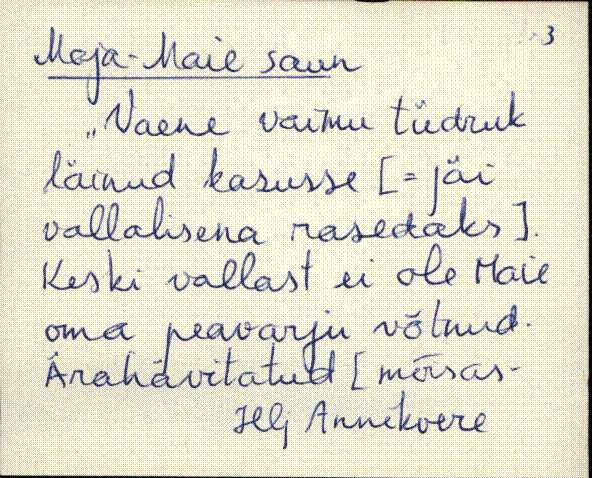 3
Maja-Maie saun
„Vaene vaimu tüdruk
läinud kasusse [= jäi
vallalisena rasedaks].
Keski vallast ei ole Maie
oma peavarju võtnud.
Ärahävitatud [mõisas-
Hlj Annikvere